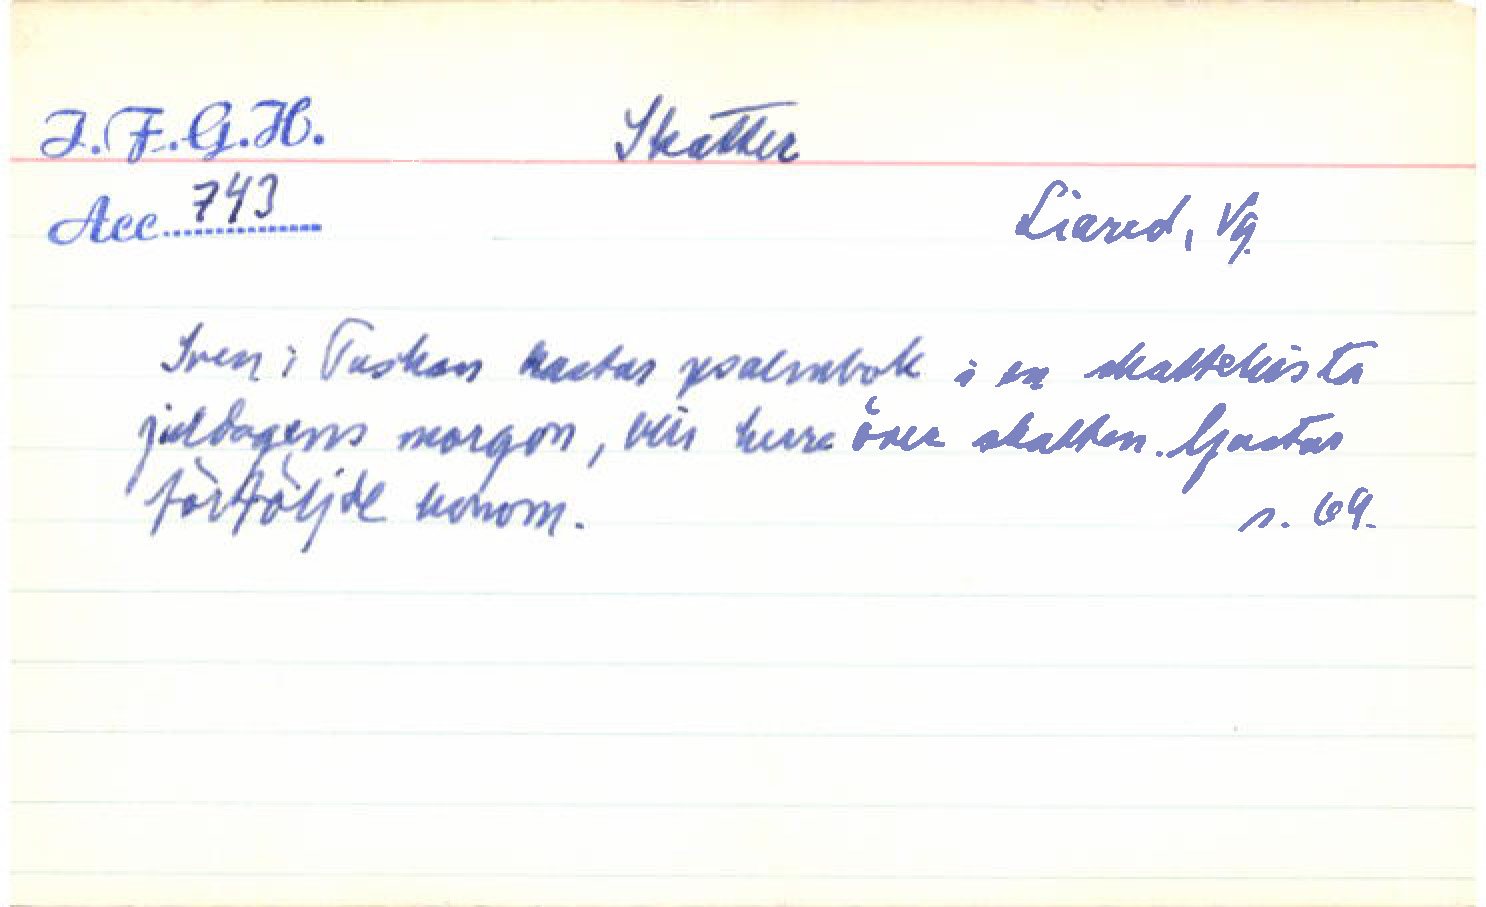 I.F.G.H. Skatter
Acc 743
Liared, Vg.
Sven i Puskan kastar psalmbok i en skattekista
juldagens morgon, blir herre över skatten. Gastar
förföljde honom. s. 69.